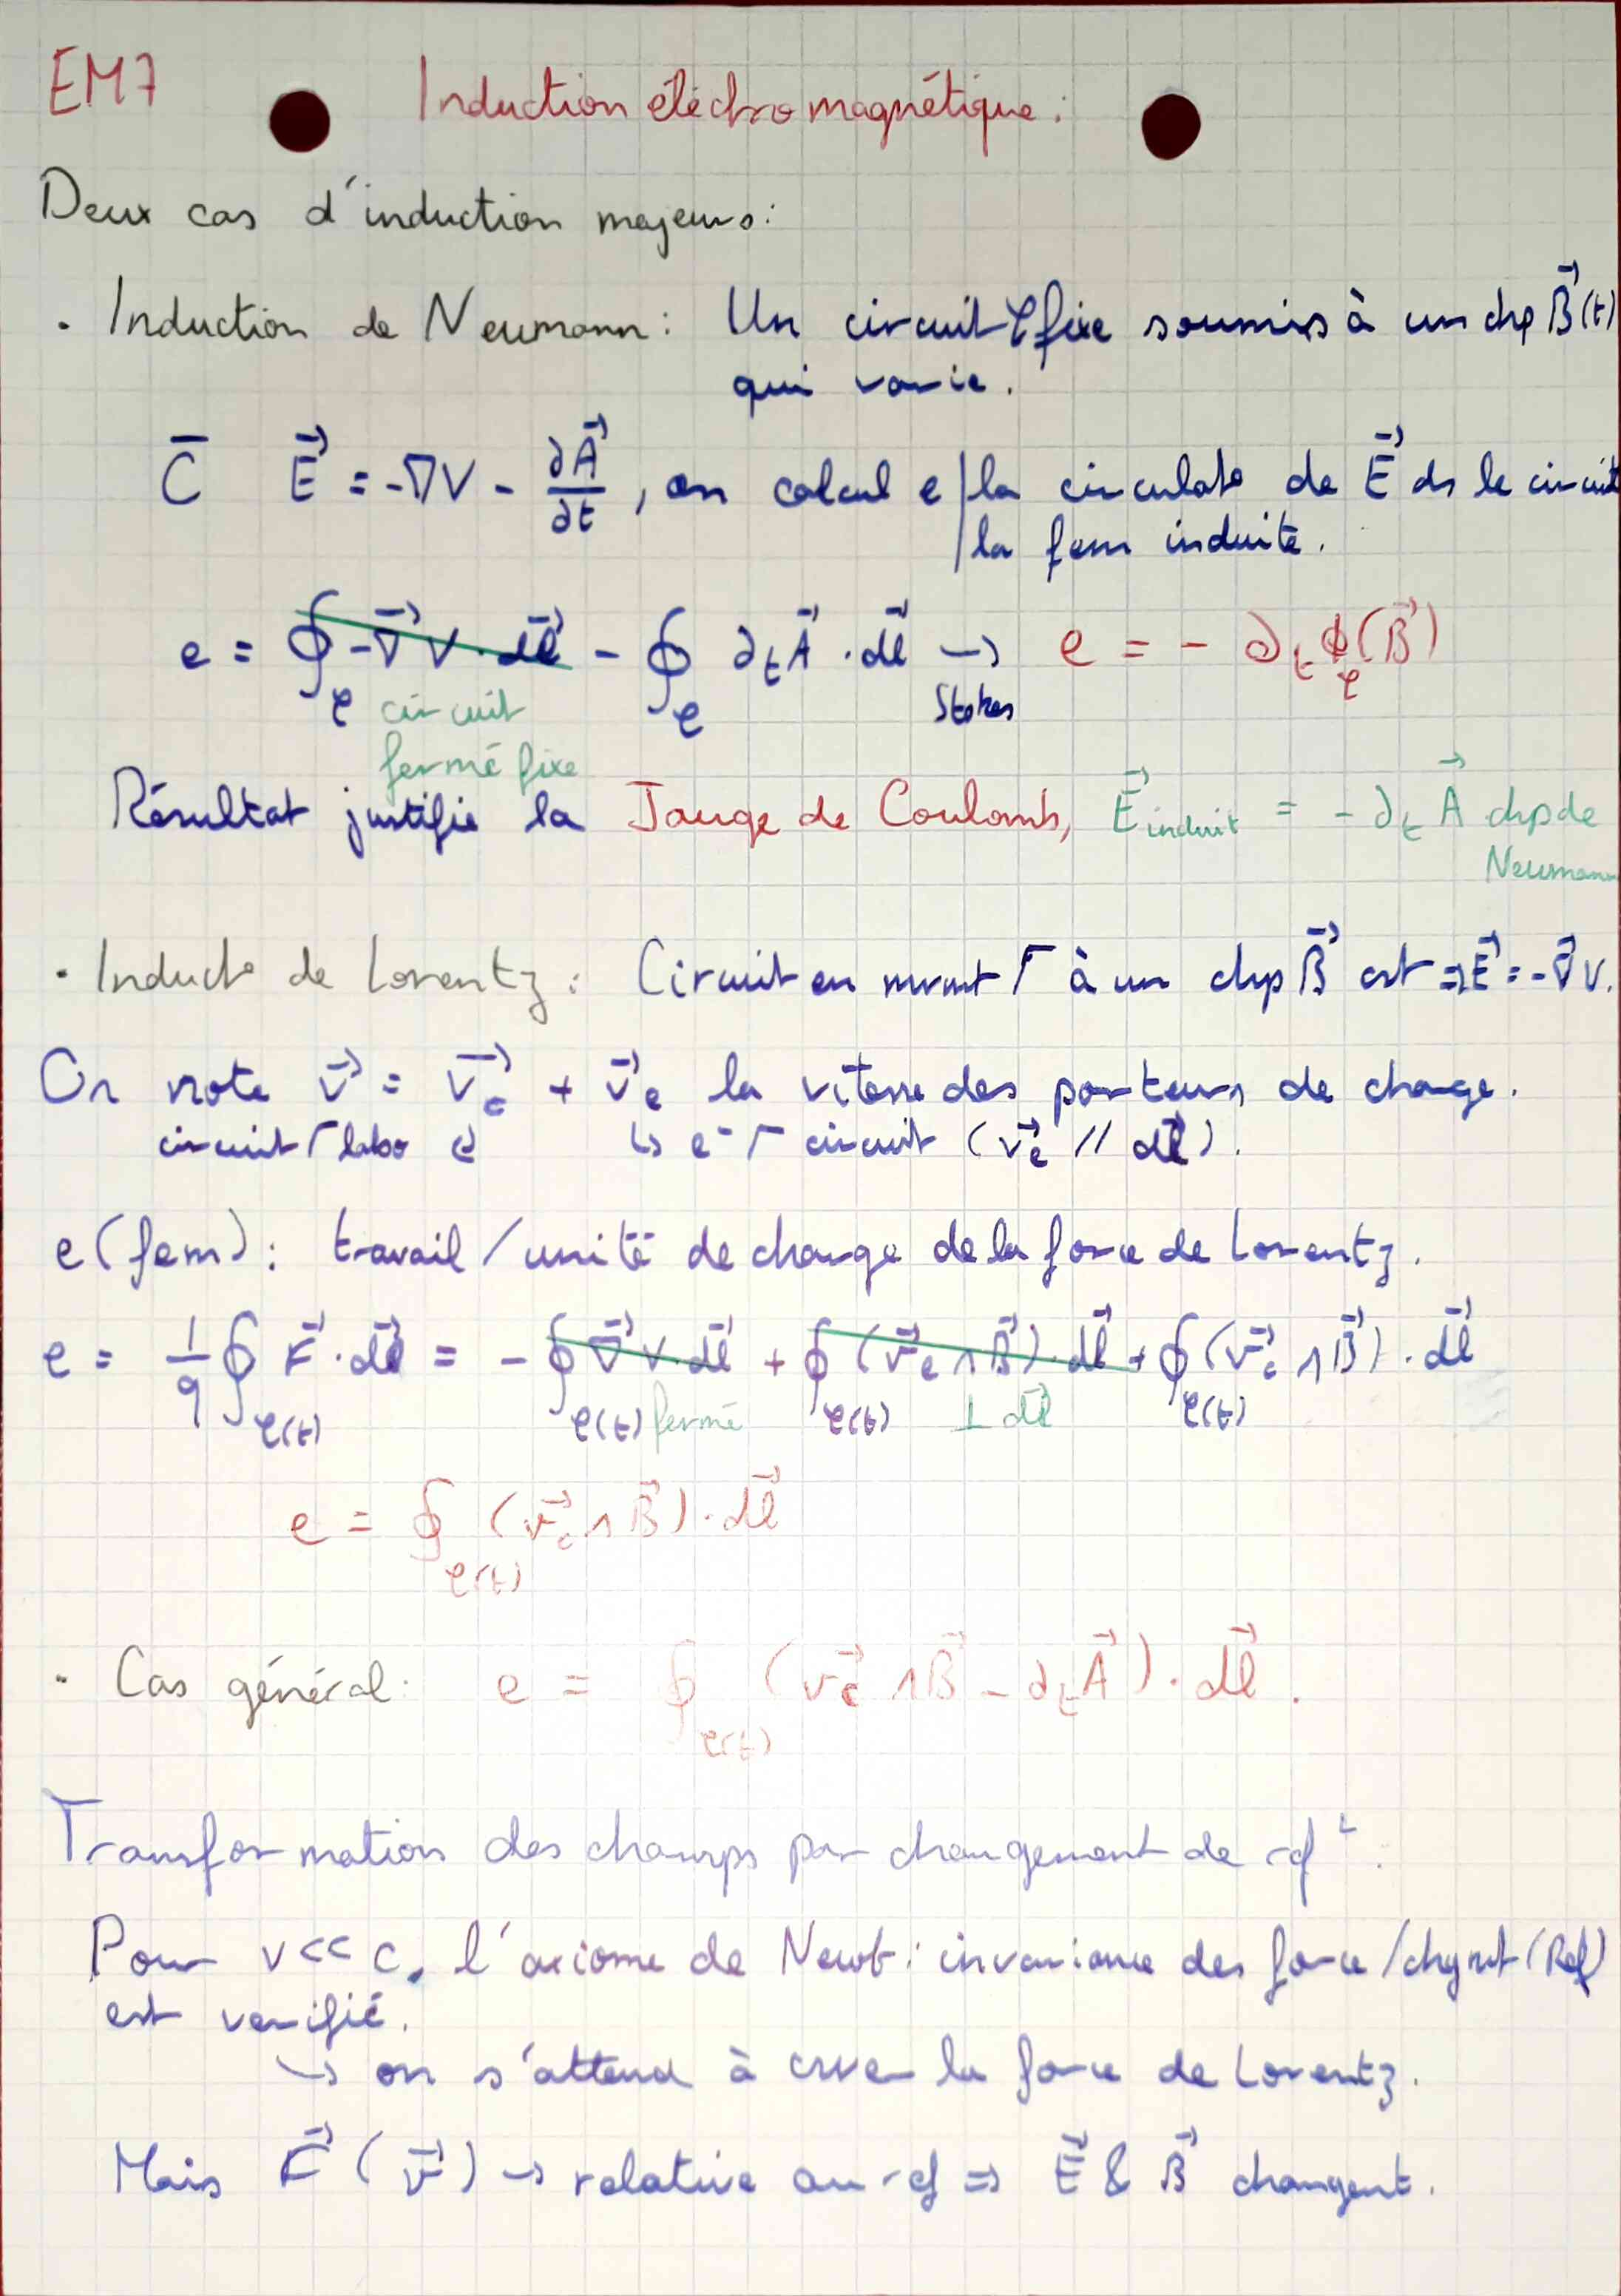 EM7 Induction éléctromagnétique:
Deux cas d'induction majeurs:
· Induction de Neumann: Un circuit 𝒞 fixe soumis à un chp B⃗(t)
qui varie.
C̄ E⃗ = -∇V - ∂A⃗/∂t, on calcul e | la circulat° de E⃗ ds le circuit
| la fem induite.
e = ∮_𝒞 -∇⃗V·dl⃗ - ∮_𝒞 ∂_t A⃗·dl⃗ → e = - ∂_t ϕ_𝒞(B⃗)
circuit Stokes
fermé fixe
Résultat justifie la Jauge de Coulomb, E⃗induit = - ∂_t A⃗ chp de
Neumann
· Induct° de Lorentz: Circuit en mvmt Γ à un chp B⃗ cst ⇒ E⃗ = -∇⃗V.
On note v⃗ = v⃗_c + v⃗_e la vitesse des porteurs de charge.
circuit Γ labo ↵ ↳ e⁻ Γ circuit (v⃗_e // dl⃗).
e (fem): travail/unité de charge de la force de Lorentz.
e = 1/q ∮_𝒞(t) F⃗·dl⃗ = - ∮_𝒞(t) ∇⃗V·dl⃗ + ∮_𝒞(t) (v⃗_e ∧ B⃗)·dl⃗ + ∮_𝒞(t) (v⃗_c ∧ B⃗)·dl⃗
fermé ⊥ dl⃗
e = ∮_𝒞(t) (v⃗_c ∧ B⃗)·dl⃗
· Cas général: e = ∮_𝒞(t) (v⃗_c ∧ B⃗ - ∂_t A⃗)·dl⃗.
Transformation des champs par changement de ref^L:
Pour v << c, l'axiome de Newt: invariance des force/chgmt (Ref)
est verifié.
↳ on s'attend à csver la force de Lorentz.
Mais F⃗(v⃗) → relative au ref ⇒ E⃗ & B⃗ changent.